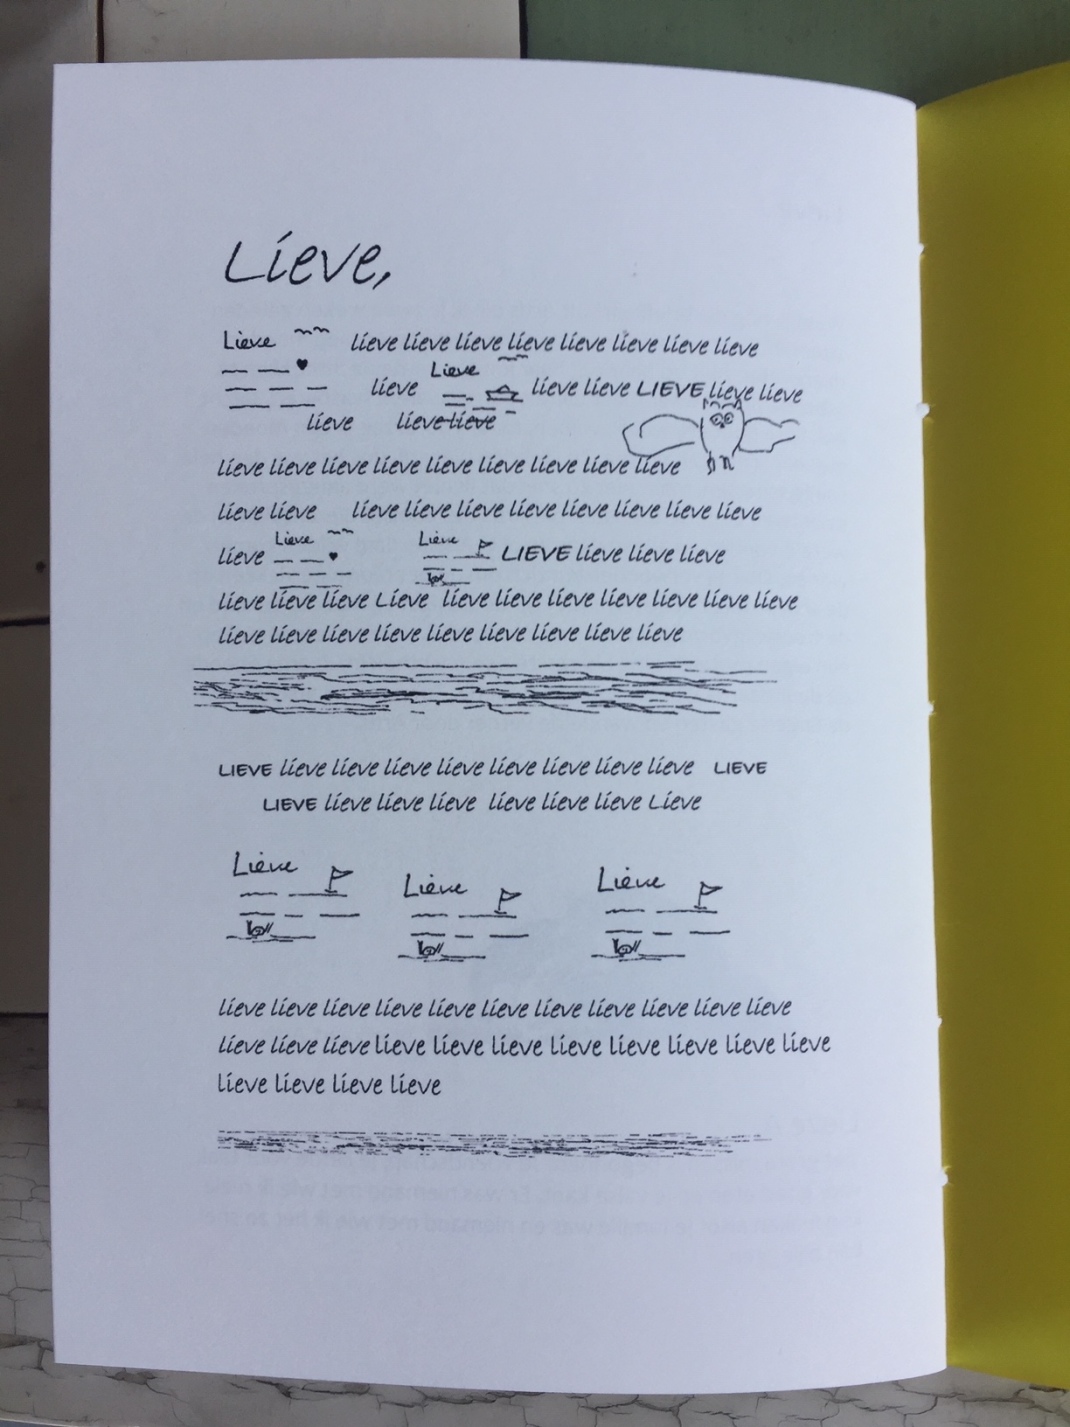 Lieve,
Lieve lieve lieve lieve lieve lieve lieve lieve lieve
lieve Lieve lieve lieve LIEVE lieve lieve
lieve lieve lieve
lieve lieve lieve lieve lieve lieve lieve lieve lieve
lieve lieve lieve lieve lieve lieve lieve lieve lieve lieve
lieve Lieve Lieve LIEVE lieve lieve lieve
lieve lieve lieve Lieve lieve lieve lieve lieve lieve lieve lieve
lieve lieve lieve lieve lieve lieve lieve lieve lieve
LIEVE lieve lieve lieve lieve lieve lieve lieve lieve LIEVE
LIEVE lieve lieve lieve lieve lieve lieve Lieve
Lieve Lieve Lieve
lieve lieve lieve lieve lieve lieve lieve lieve lieve lieve lieve
lieve lieve lieve lieve lieve lieve lieve lieve lieve lieve lieve
lieve lieve lieve lieve